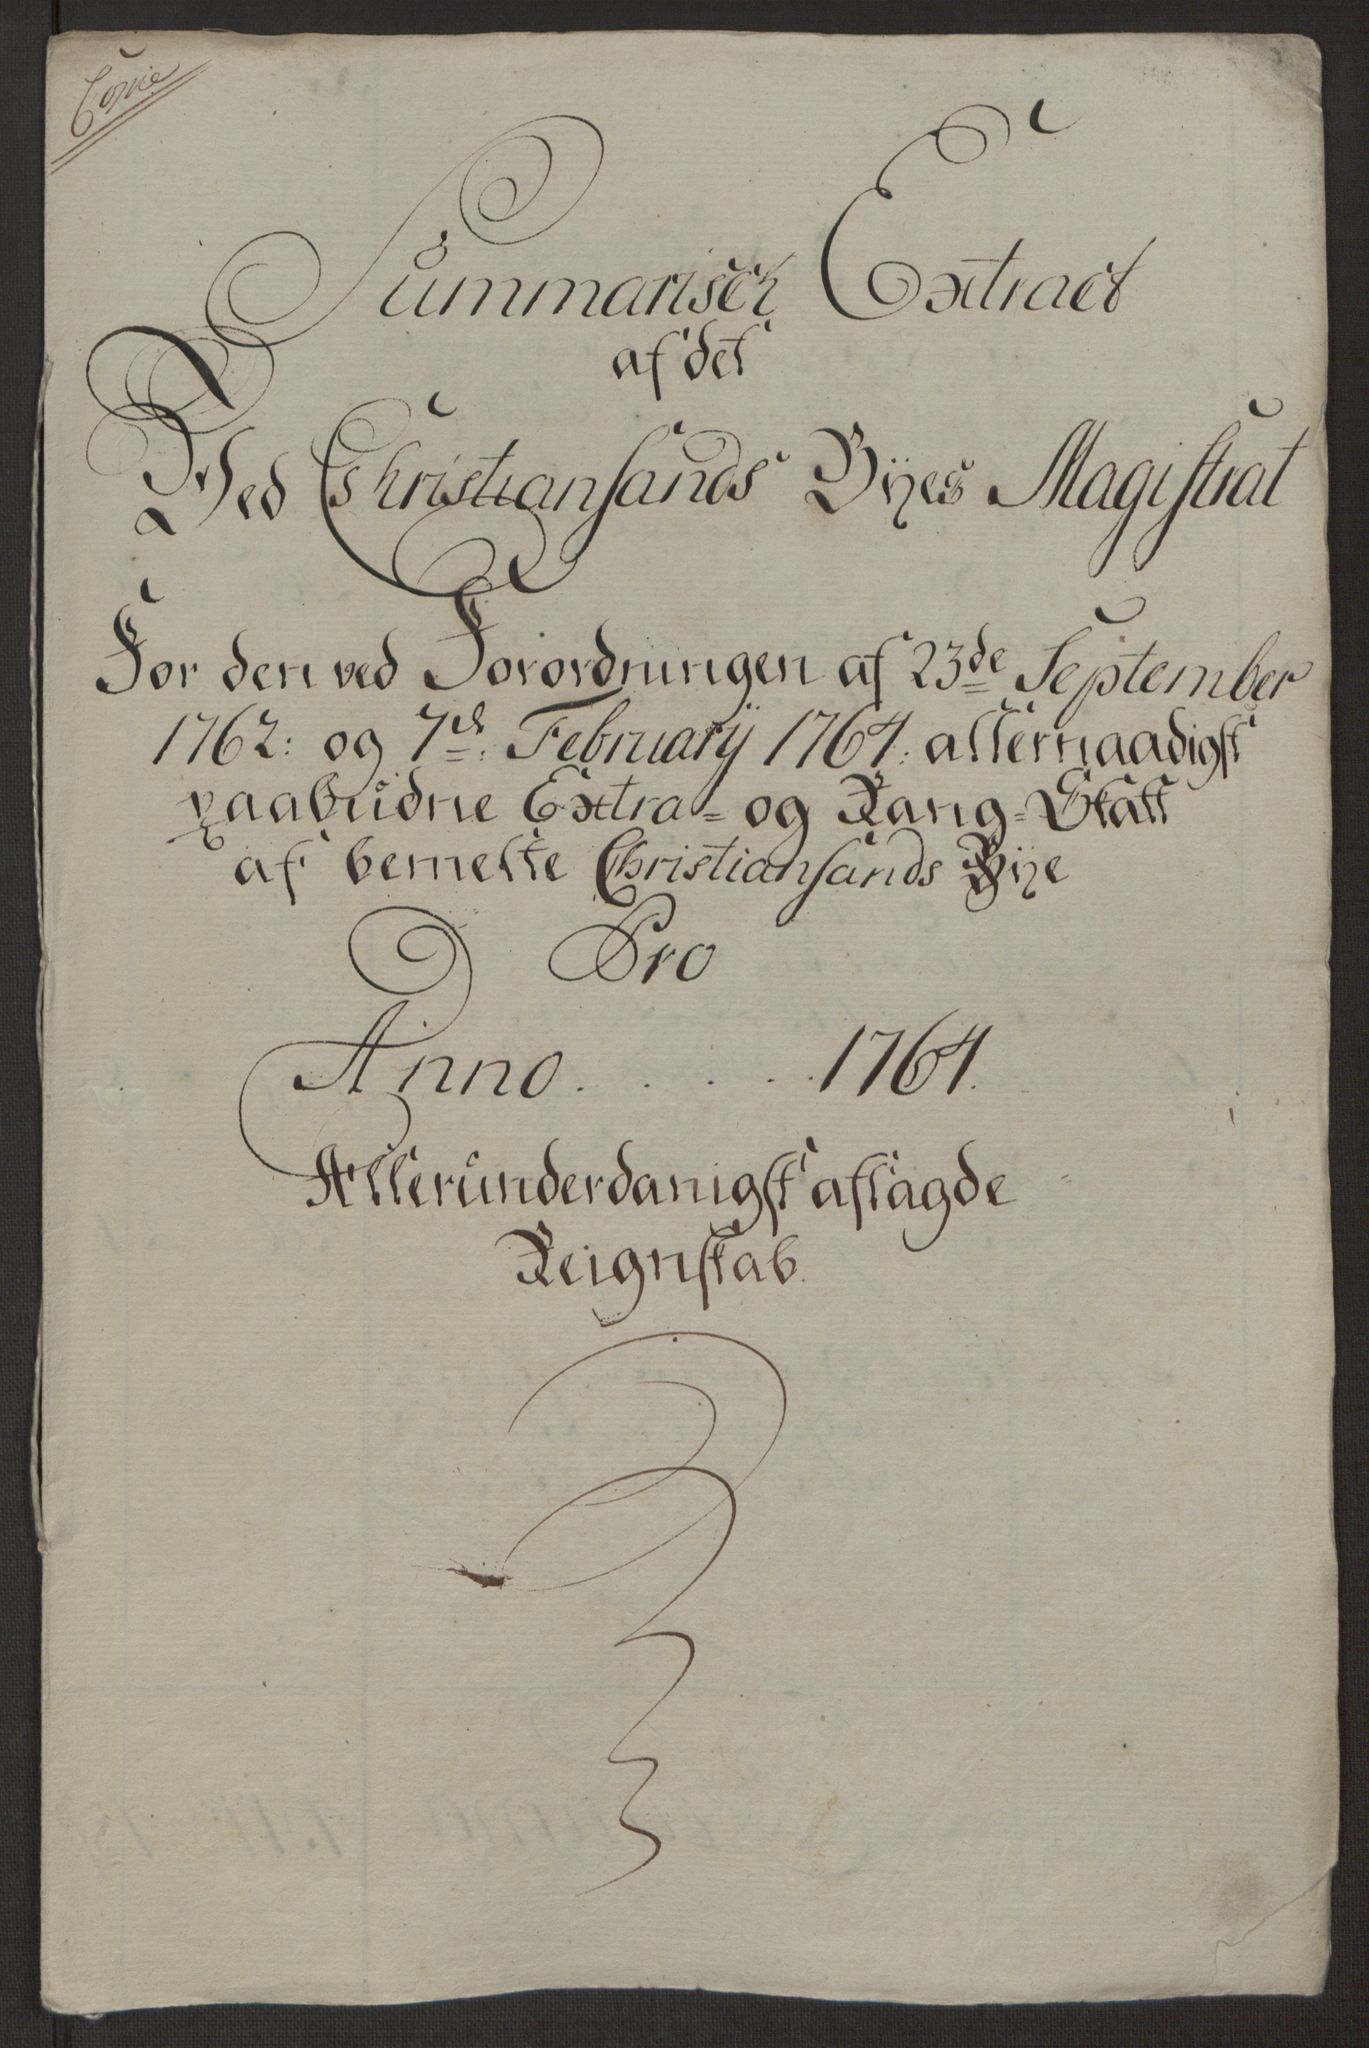 Copie
Summarisch Extract
af det
Ved Christiansands Byes Magistrat
For den ved Forordningen af 23de September
1762: og 7de: February 1764: allernaadigst
paabudne Extra= og Rang=Skatt
af bemelte Christiansands Bye
Pro
Anno . . . . . 1764.
Allerunderdanigst aflagde
Reignskab.